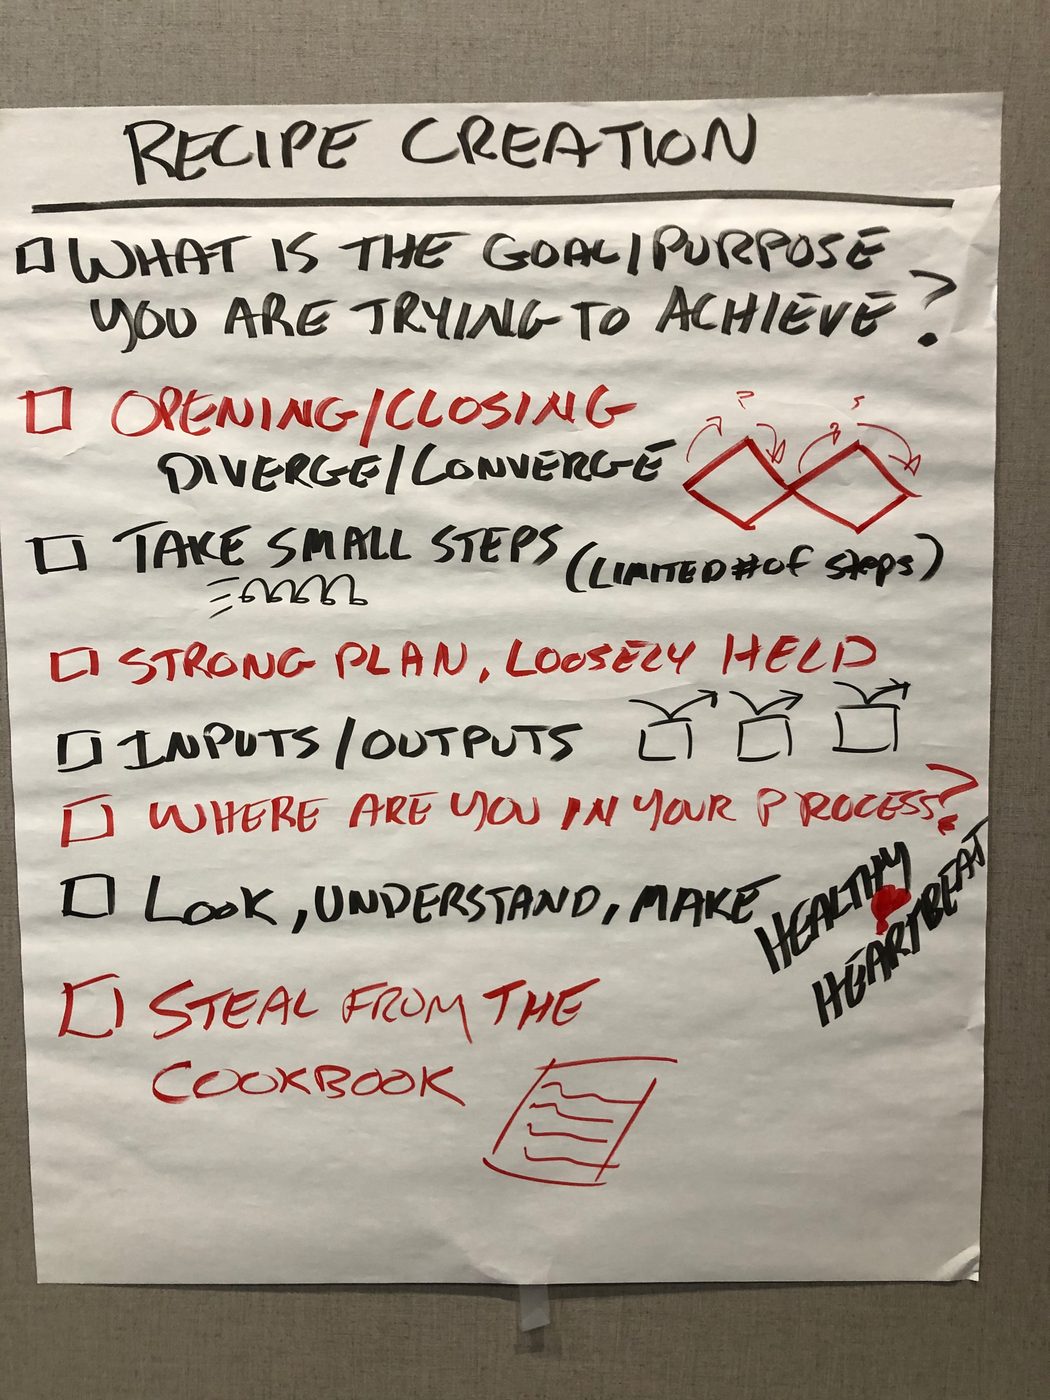 RECIPE CREATION
WHAT IS THE GOAL/PURPOSE
YOU ARE TRYING TO ACHIEVE?
OPENING/CLOSING
DIVERGE/CONVERGE
P S
TAKE SMALL STEPS (LIMITED # OF STEPS)
STRONG PLAN, LOOSELY HELD
INPUTS/OUTPUTS
WHERE ARE YOU IN YOUR PROCESS?
LOOK, UNDERSTAND, MAKE
HEALTHY
HEARTBEAT
STEAL FROM THE
COOKBOOK